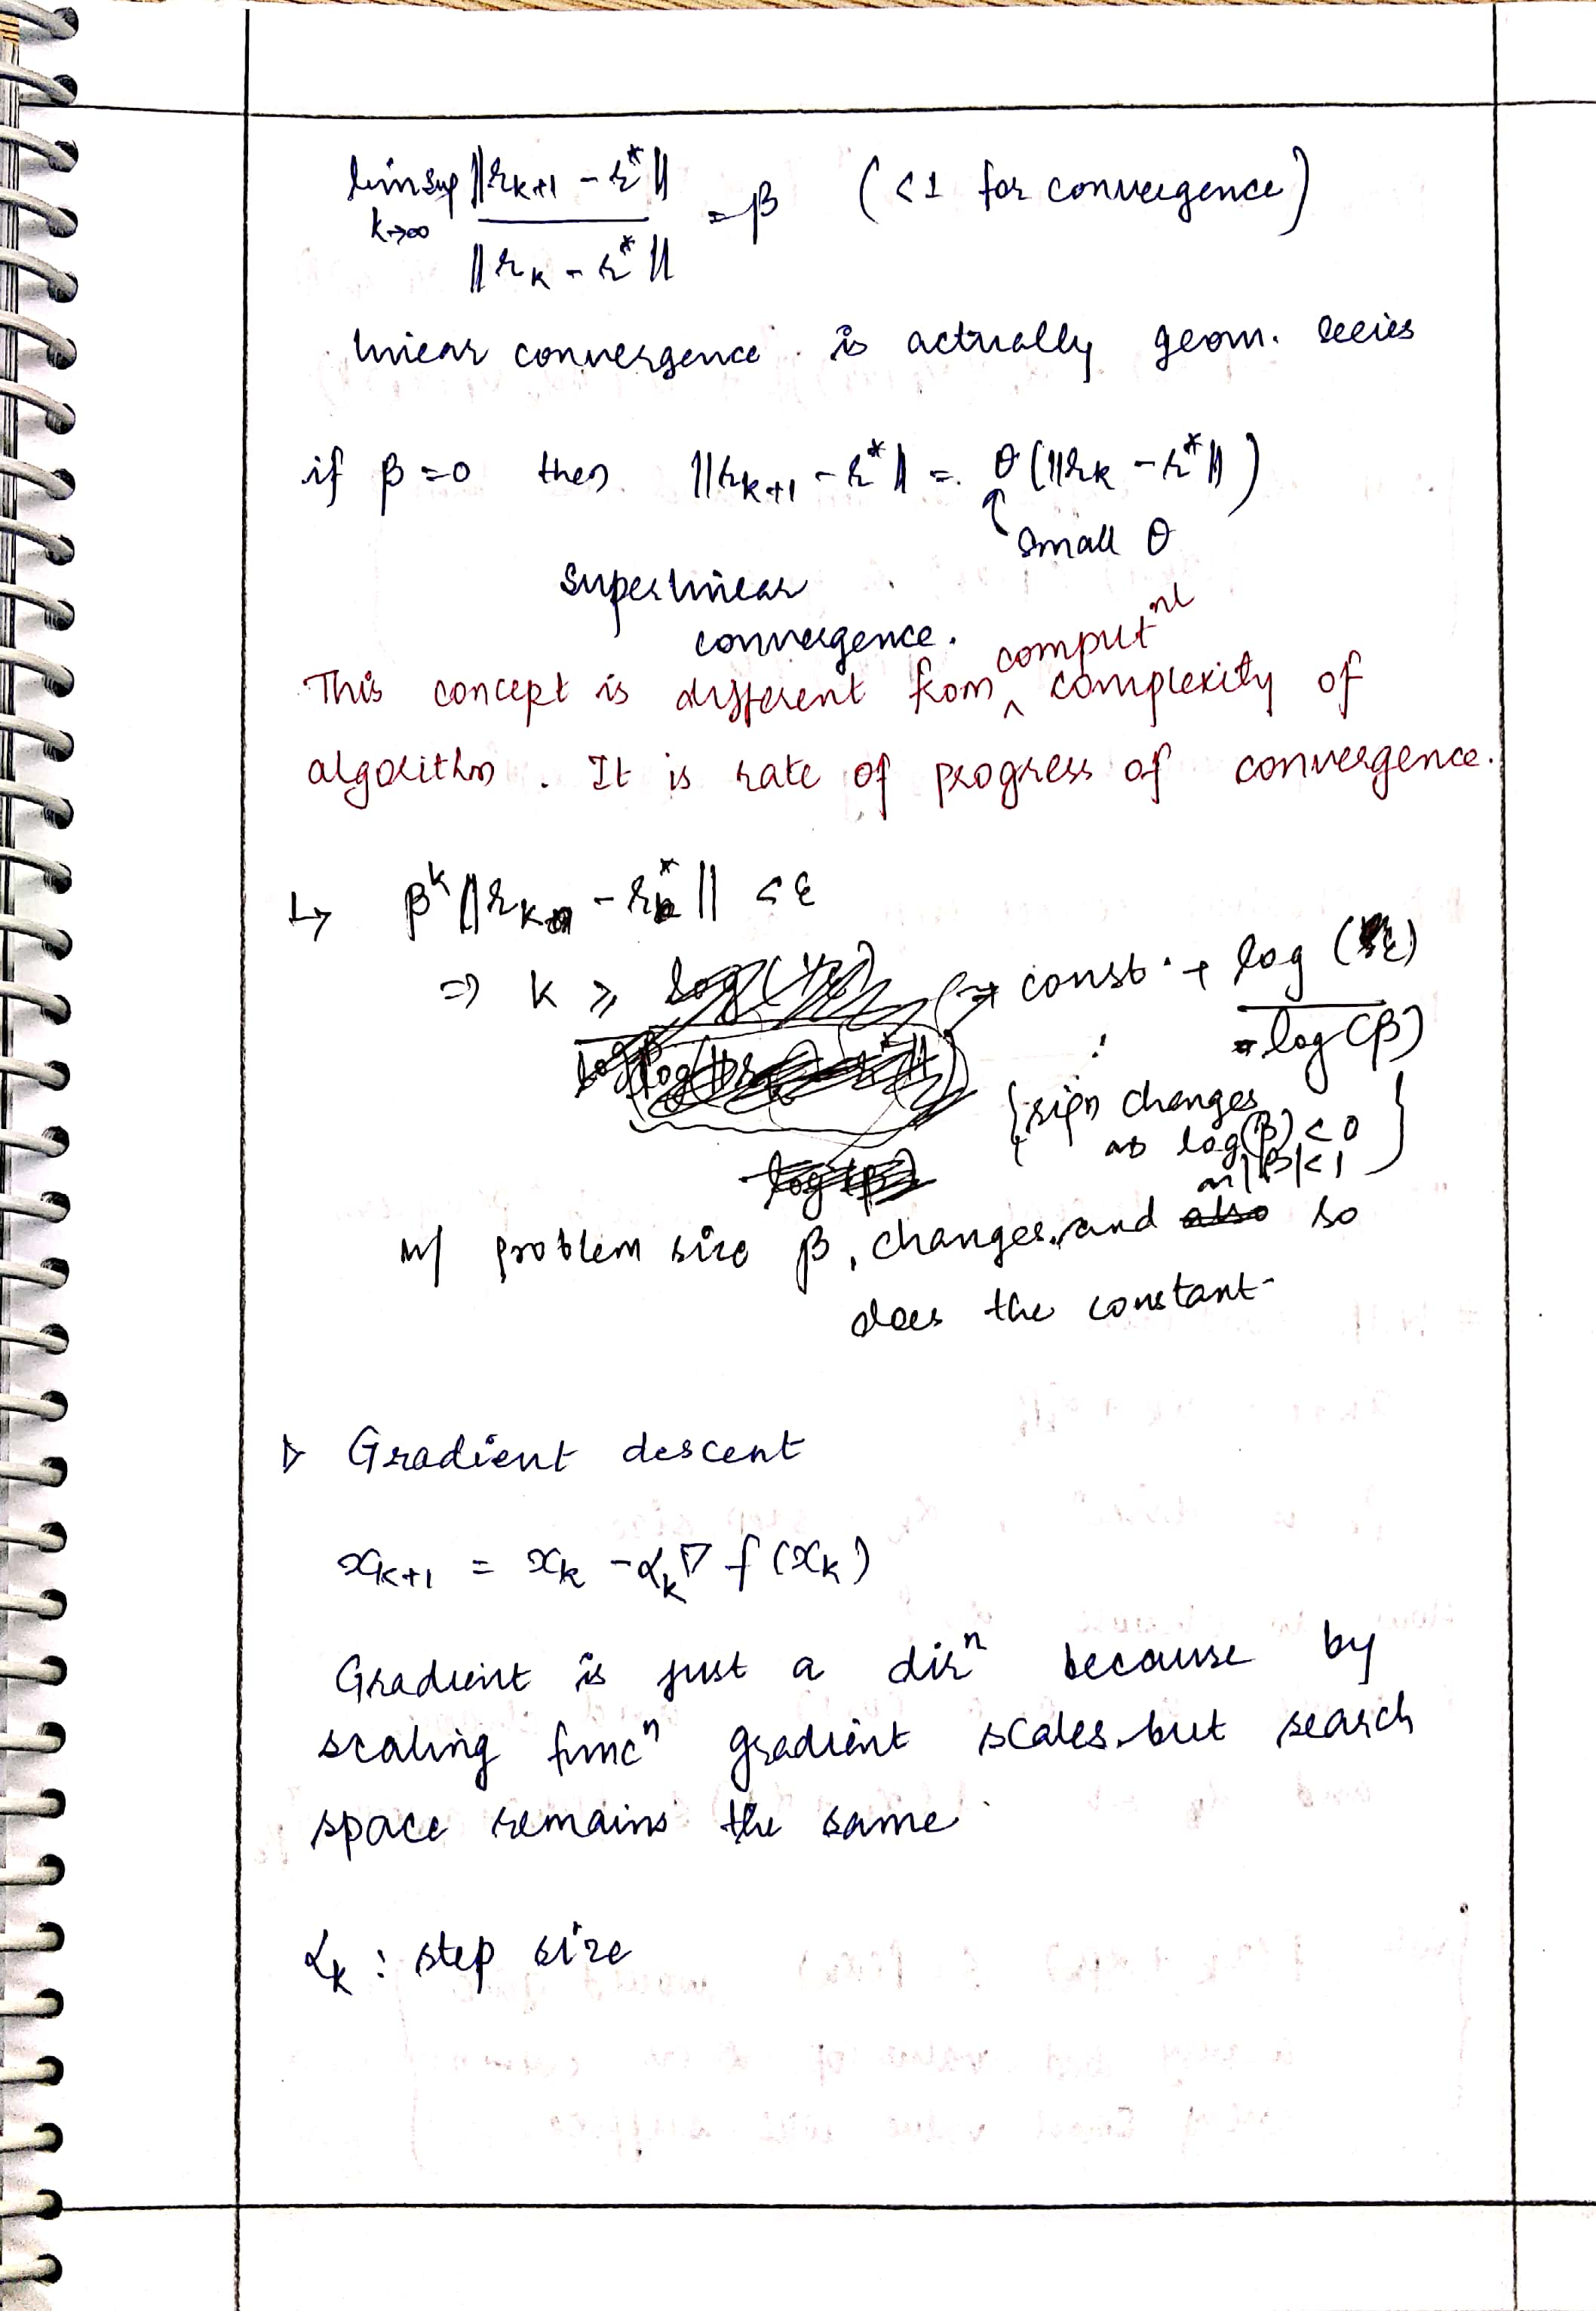 limsup ||r_{k+1} - r*|| / ||r_k - r*|| = β (<1 for convergence)
k→∞
linear convergence is actually geom. series
if β=0 then ||r_{k+1} - r*|| = θ(||r_k - r*||)
↑ small θ
superlinear
convergence.
This concept is different from ^ comput^nl complexity of
algorithm. It is rate of progress of convergence.
↳ β^k ||r_k - r*|| ≤ ε
⇒ k ≥ const. + log(ε) / log(β)
{sign changes
as log(β) < 0
as |β|<1}
w/ problem size β, changes, and so
does the constant.
▷ Gradient descent
x_{k+1} = x_k - α_k ∇ f(x_k)
Gradient is just a dir^n because by
scaling func^n gradient scales but search
space remains the same.
α_k : step size